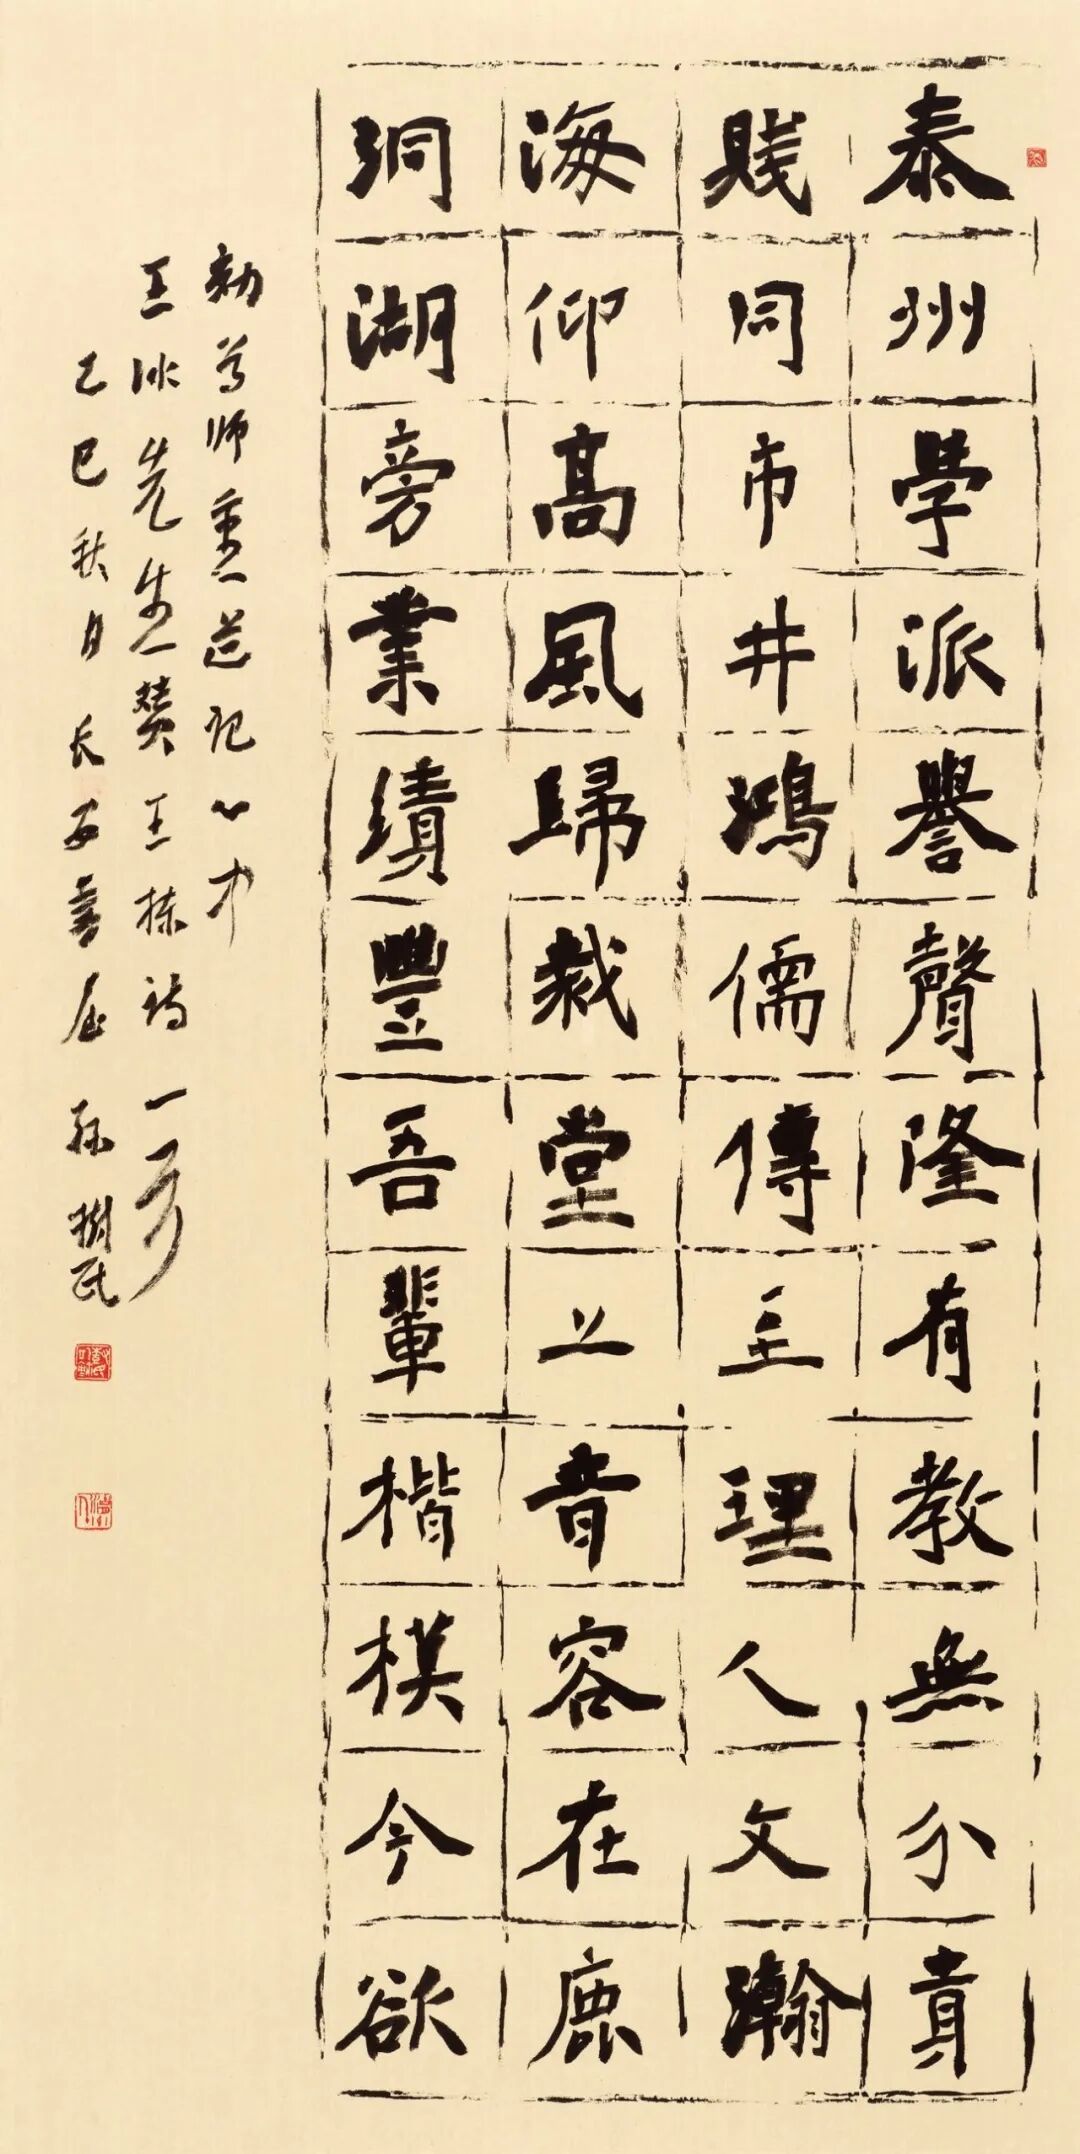 泰州學派譽聲隆有教無分貴
賤同市井鴻儒傳主理人文瀚
海仰高風歸裁堂上音容在鹿
洞湖旁業績豐吾輩楷模今欲
効尊師重道記心中
王冰先生贊王栋詩一首
乙巳秋月長安書屋孫樹民